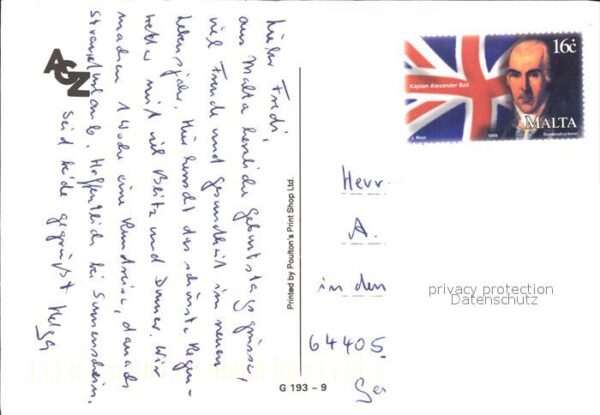 Lieber Fredi,
aus Malta herzliche Geburtstagsgrüsse,
viel Freude und Gesundheit im neuen
Lebensjahr. Hier herrscht das schönste Regen-
wetter mit viel Blitz und Donner. Wir
machen 1 Woche eine Rundreise, danach
Strandurlaub. Hoffentlich bei Sonnenschein.
Seid beide gegrüßt Helga
AGN
Printed by Poulton's Print Shop Ltd.
G 193 - 9
16c
Kaptan Alexander Ball
MALTA
J. Mist
1999
Bundesdruckerei
Herr
A.
in den
64405
privacy protection
Datenschutz